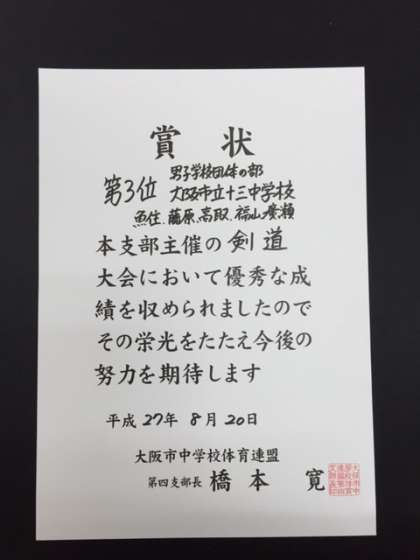 賞状
男子学校団体の部
第3位 大阪市立十三中学校
魚住、藤原、高取、福山、廣瀬
本支部主催の剣道
大会において優秀な成
績を収められましたので
その栄光をたたえ今後の
努力を期待します
平成27年8月20日
大阪市中学校体育連盟
第四支部長 橋本 寛